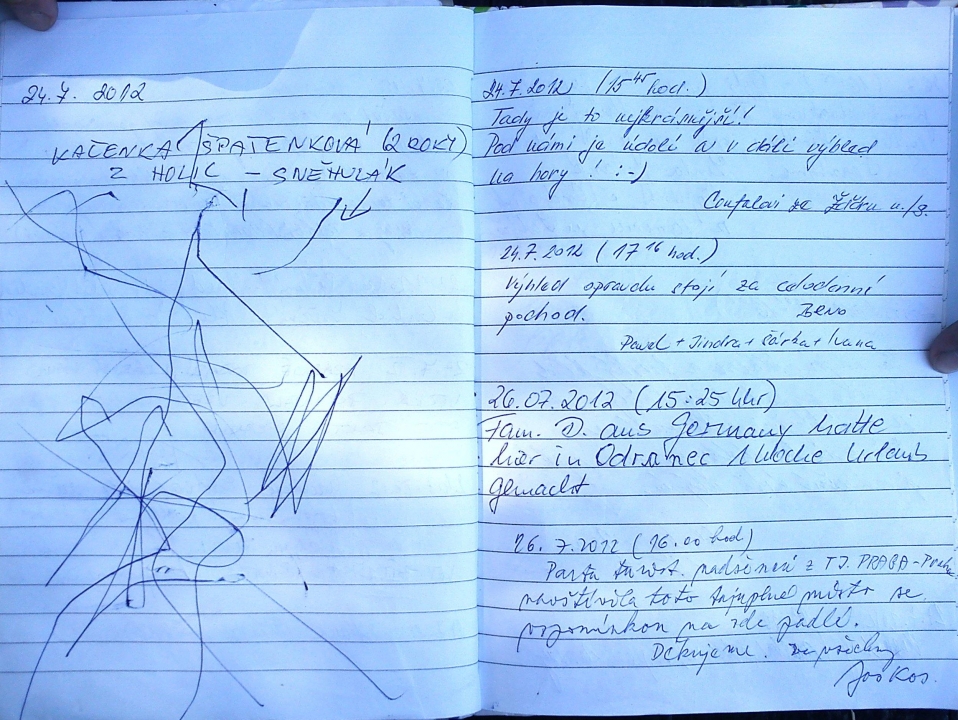 24.7. 2012
KAČENKA ŠPATENKOVÁ (2 ROKY)
Z HOLIC - SNĚHULÁK
24.7.2012 (15⁴⁵ hod.)
Tady je to nejkrásnější!
Pod námi je údolí a v dáli výhled
na hory! :-)
Coufalovi ze
24.7.2012 (17¹⁶ hod.)
Výhled opravdu stojí za celodenní
pochod.
Pavel + Jindra + Šárka + Ivana
26.07.2012 (15:25 Uhr)
Fam. D. aus Germany hatte
hier in Odranec 1 Woche Urlaub
gemacht
26.7.2012 (16.00 hod)
Parta turist. nadšenců z TJ. PRAGA-
navštívila toto tajuplné místo se
vzpomínkou na zde padlé.
Děkujeme. Za všechny